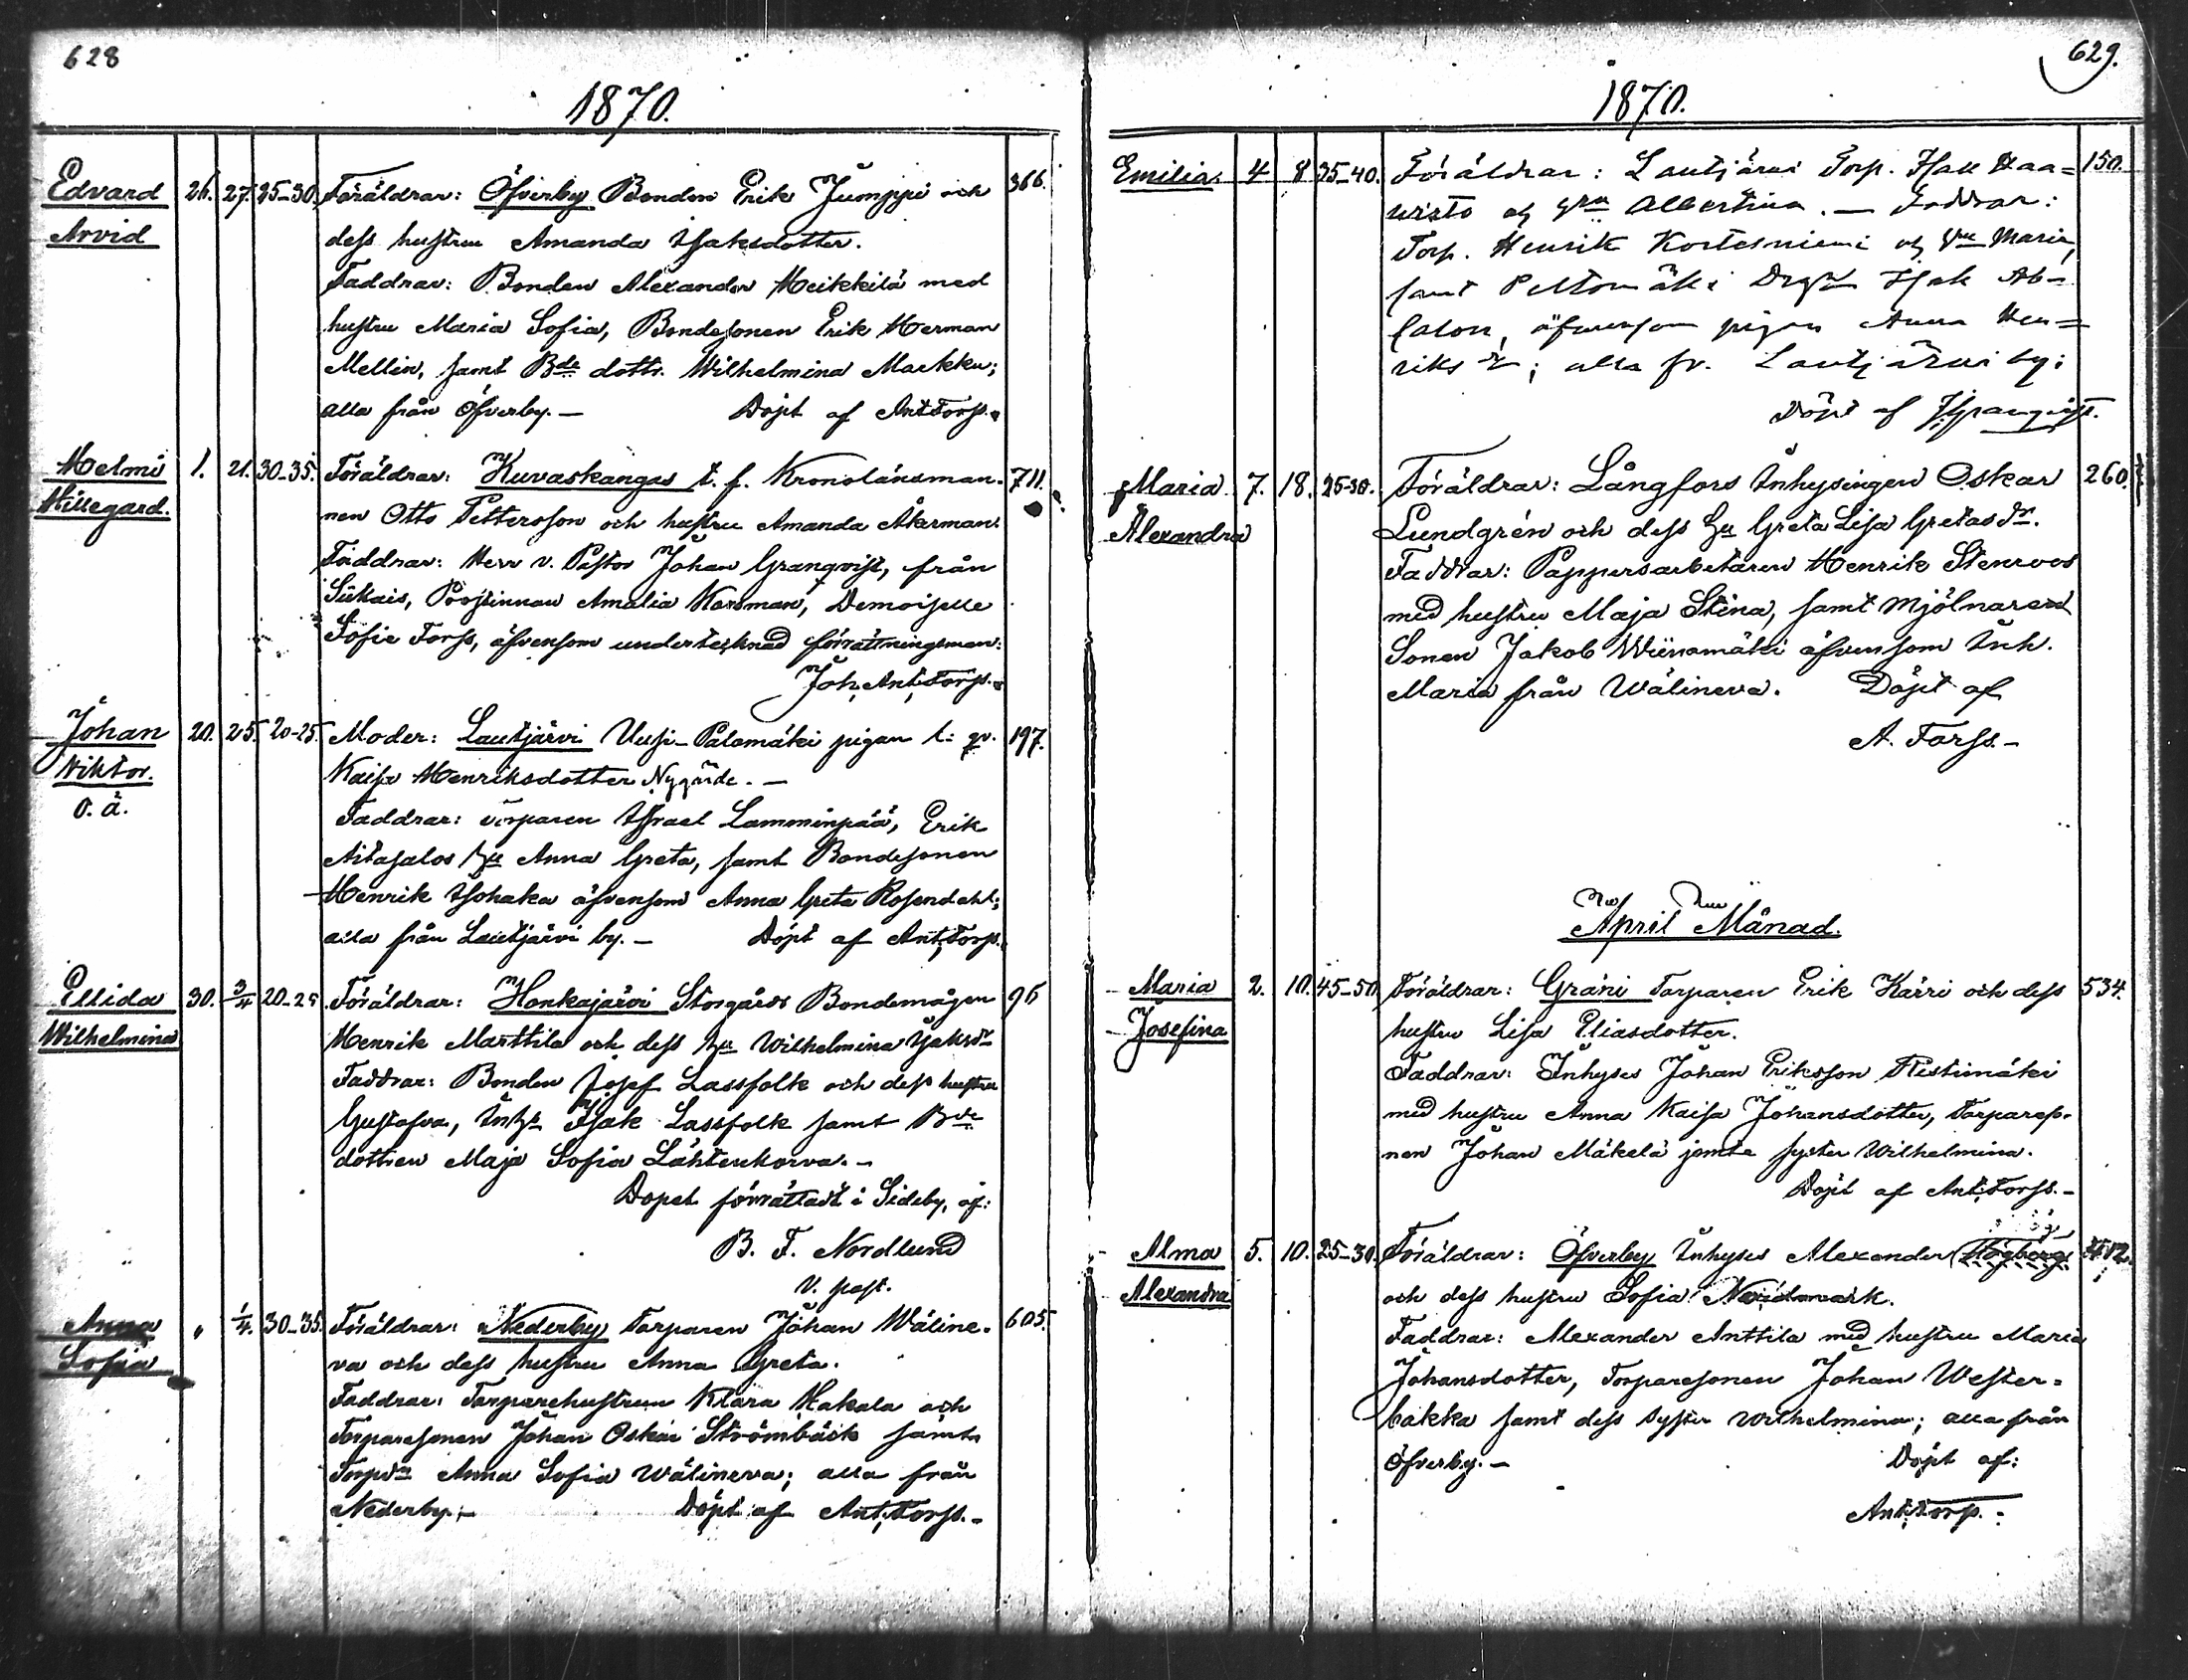 628
1870.
Edvard 26. 27. 25-30. Föräldrar: Öfverby Bonden Erik Jumppi och 366.
Arvid dess hustru Amanda Isaksdotter.
Faddrar: Bonden Alexander Heikkilä med
hustru Maria Sofia, Bondesonen Erik Herman
Mellin, samt Bde dottr. Wilhelmina Markku;
alla från Öfverby.— Döpt af Ant. Forss.
Helmi 1. 21. 30-35. Föräldrar: Kuvaskangas t. f. Kronolänsman- 711.
Hillegard. nen Otto Pettersson och hustru Amanda Åkerman.
Faddrar: Herr v. Pastor Johan Granqvist, från
Siikais, Prostinnan Amalia Korsman, Demoiselle
Sofie Forss, äfvensom undertecknad förrättningsman:
Joh. Ant. Forss.
Johan 20. 25. 20-25. Moder: Lautjärvi Uusi-Palomäki pigan l: qv. 197.
Wiktor. Kaisa Henriksdotter Nygårde.—
o. ä. Faddrar: Torparen Israel Lamminpää, Erik
Aitasalos hu Anna Greta, samt Bondesonen
Henrik Isohaka äfvensom Anna Greta Rosendahl;
alla från Lautjärvi by.— Döpt af Ant. Forss.
Ellida 30. 3/4 20-25. Föräldrar: Honkajärvi Storgårds Bondemågen 96
Wilhelmina Henrik Marttila och dess hu Wilhelmina Isaksdr
Faddrar: Bonden Josef Lassfolk och dess hustru
Gustafva, Isak Lassfolk samt Bde
dottren Maja Sofia Lähteenkorva.—
Dopet förrättadt i Sideby, af:
B. F. Nordlund
v. past.
Anna " 1/4. 30-35. Föräldrar: Nederby Torparen Johan Wäline- 605.
Sofia va och dess hustru Anna Greta.
Faddrar: Torparehustrun Klara Hakala och
Torparesonen Johan Oskar Strömbäck samt
Torpdr Anna Sofia Wälineva; alla från
Nederby.— Döpt af Ant. Forss.—
629.
1870.
Emilia. 4 8 35-40. Föräldrar: Lautjärvi Torp. Isak Haa= 150.
visto och hru Albertina.— Faddrar:
Torp. Henrik Kortesniemi och hru Maria,
samt Peltomäki Isak Ab-
salon, äfvensom pigan Anna Hen=
riksdr; alla fr. Lautjärvi by;
Döpt af J. Granqvist.
Maria 7. 18. 25-30. Föräldrar: Långfors Inhysingen Oskar 260.
Alexandra Lundgrén och dess hu Greta Lisa Gretasdr.
Faddrar: Pappersarbetaren Henrik Stenroos
med hustru Maja Stina, samt Mjölnaren
Sonen Jakob Wiinamäki äfvensom Inh.
Maria från Wälineva. Döpt af
A. Forss.—
April Månad.
Maria 2. 10. 45-50. Föräldrar: Gräni Torparen Erik Kärri och dess 534.
Josefina hustru Lisa Eliasdotter.
Faddrar: Inhyses Johan Eriksson Ristimäki
med hustru Anna Kaisa Johansdotter, Torpareso-
nen Johan Mäkelä jemte syster Wilhelmina.
Döpt af Ant. Forss.—
Alma 5. 10. 25-30. Föräldrar: Öfverby Inhyses Alexander Högberg
Alexandra och dess hustru Sofia Nordmark.
Faddrar: Alexander Anttila med hustru Maria
Johansdotter, Torparesonen Johan Wester-
backa samt dess syster Wilhelmina; alla från
Öfverby.— Döpt af:
Ant. Forss.